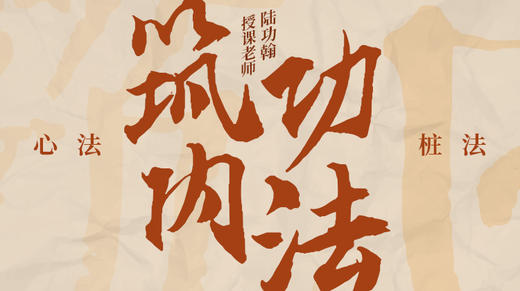 筑内
功法
陆功翰
授课老师
心法
桩法